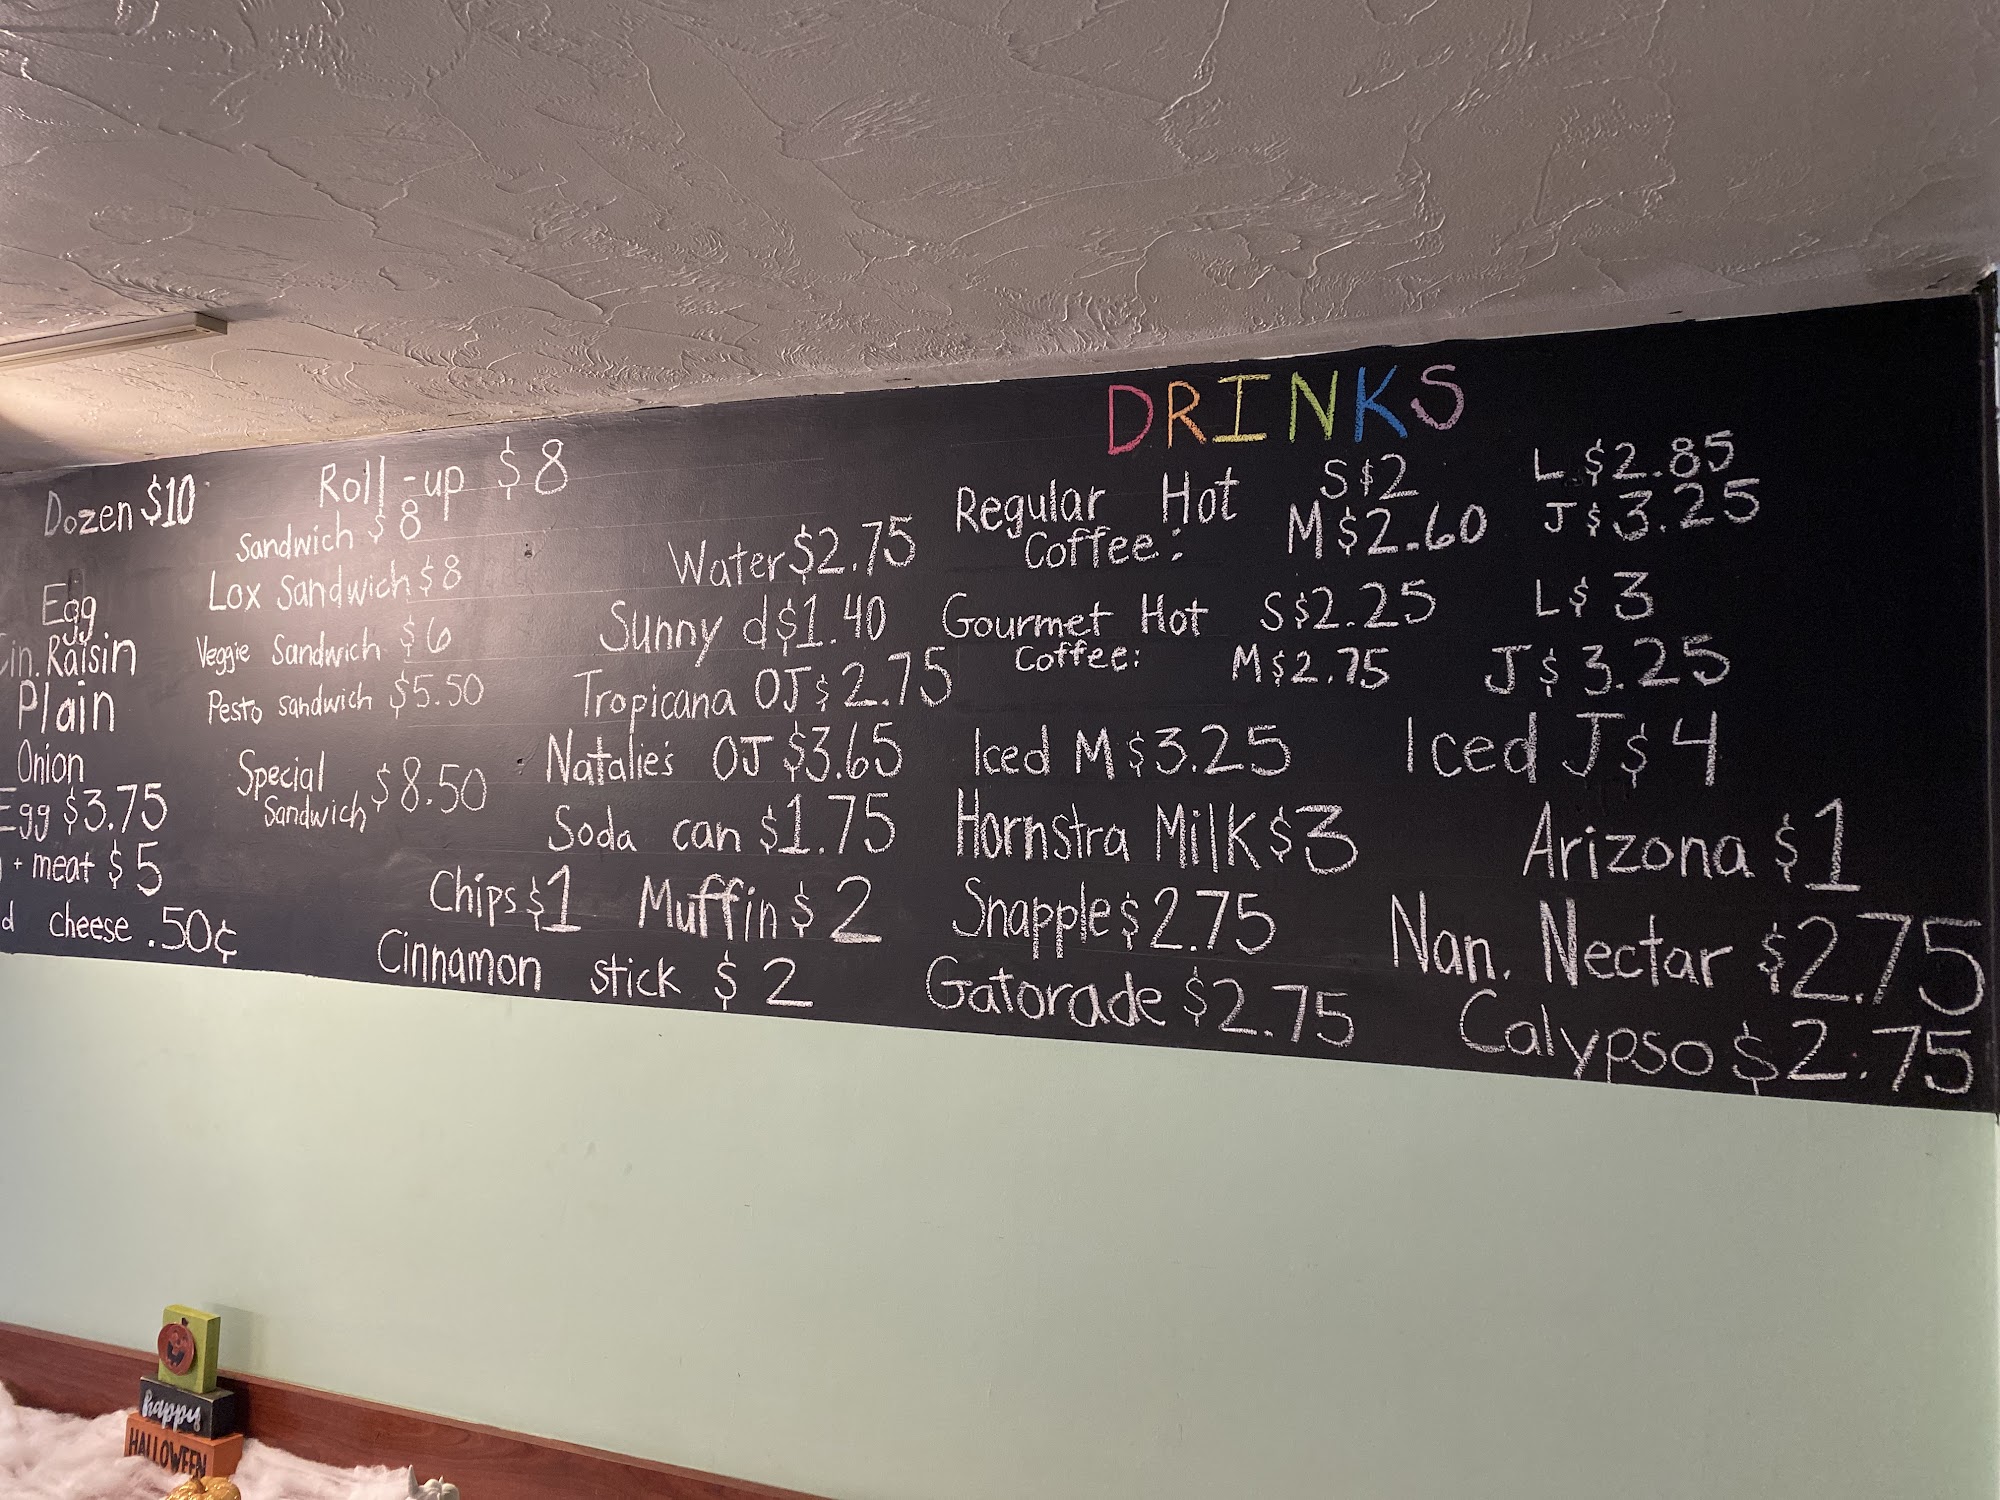 Dozen $10
Egg
Cin. Raisin
Plain
Onion
Egg $3.75
+ meat $5
cheese .50¢
Roll-up $8
Sandwich $8
Lox Sandwich $8
Veggie Sandwich $6
Pesto sandwich $5.50
Special
Sandwich $8.50
Water $2.75
Sunny d $1.40
Tropicana OJ $2.75
Natalie's OJ $3.65
Soda can $1.75
Chips $1 Muffin $2
Cinnamon stick $2
DRINKS
Regular Hot S $2 L $2.85
Coffee: M $2.60 J $3.25
Gourmet Hot S $2.25 L $3
Coffee: M $2.75 J $3.25
Iced M $3.25 Iced J $4
Hornstra Milk $3 Arizona $1
Snapple $2.75 Nan. Nectar $2.75
Gatorade $2.75 Calypso $2.75
happy
HALLOWEEN